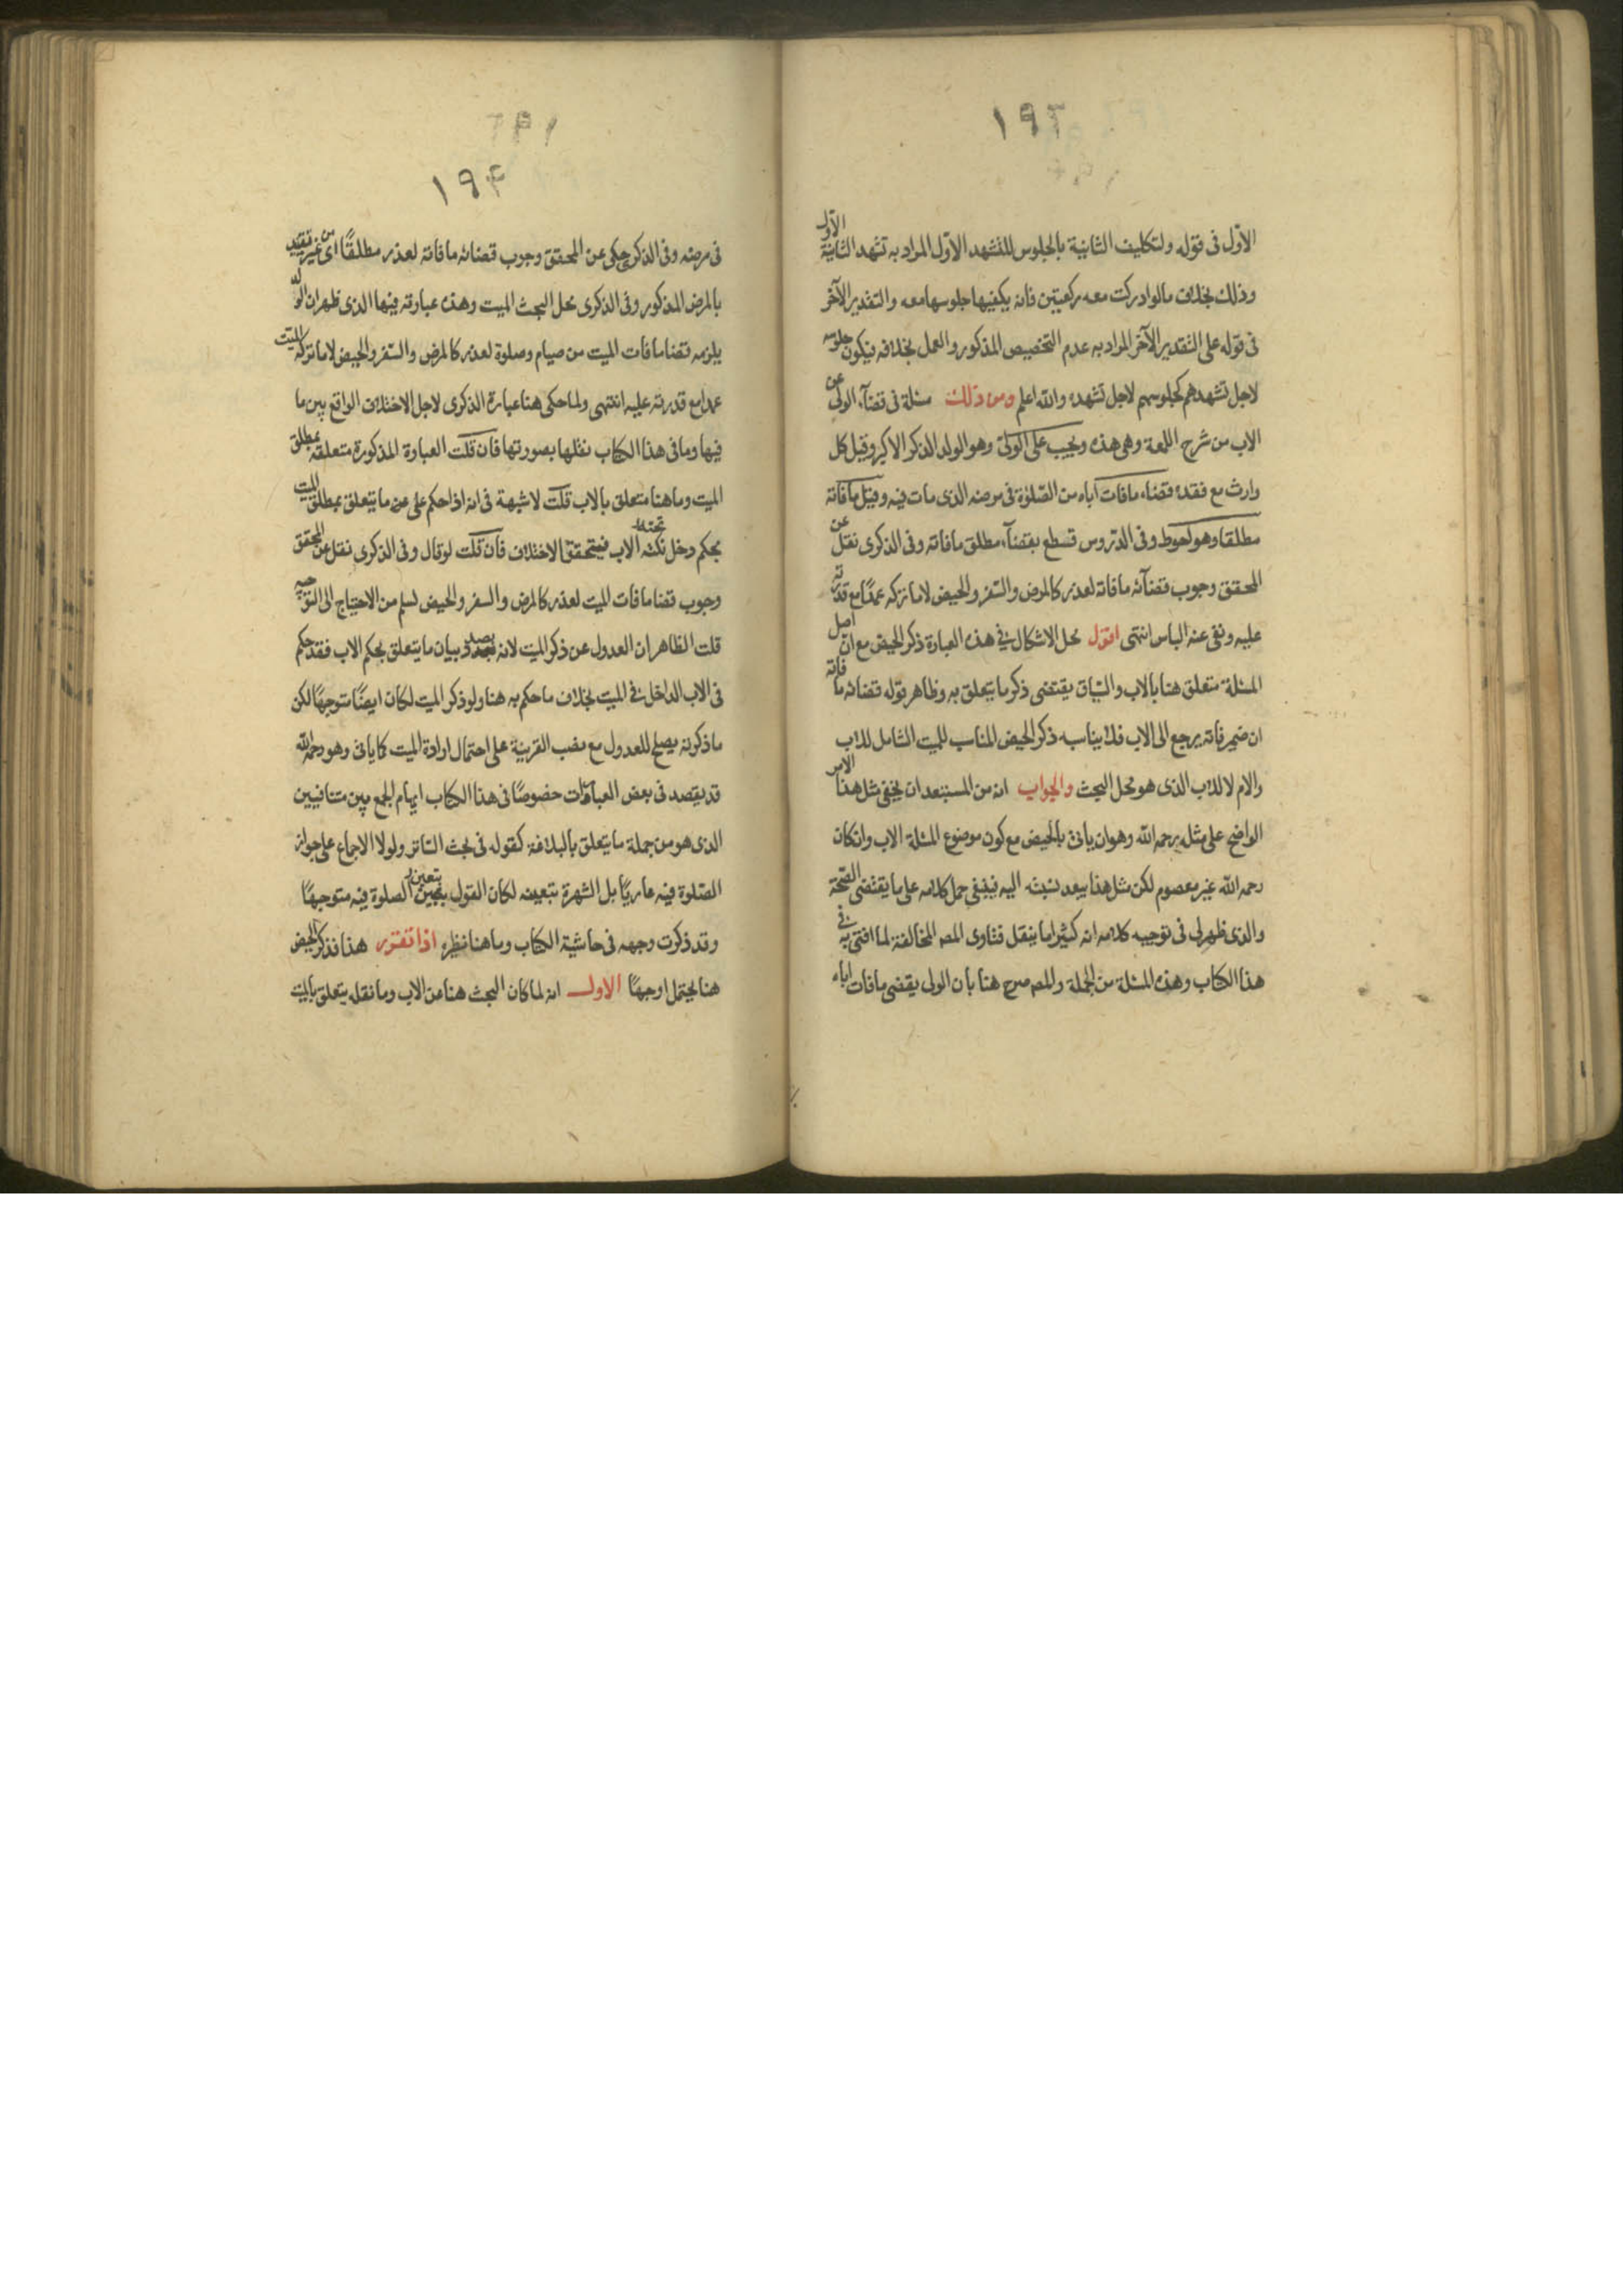 ١٩٣
الاوّل فى قوله ولتكليف الثانية بالجلوس للتشهد الاوّل المراد به تشهد الثانية الاوّل
وذلك بخلاف ما لو ادركت معه ركعتين فانه يكفيها جلوسها معه والتقدير الآخر
فى قوله على التقدير الآخر المراد به عدم التخصيص المذكور والعمل بخلافه فيكون جلوسه
لاجل تشهدهم كجلوسهم لاجل تشهده والله اعلم ومن ذلك مسئلة فى قضآء الولى عن
الاب من شرح اللمعة وهى هذه ويجب على الولىّ وهو الولد الذكر الاكبر وقيل كل
وارث مع فقده قضاء ما فات اباه من الصّلوة فى مرضه الذى مات فيه وقيل ما فاته
مطلقا وهو احوط وفى الدّروس قطع بقضآء مطلق ما فاته وفى الذكرى نقل عن
المحقق وجوب قضآئه ما فاته لعذر كالمرض والسّفر والحيض لا ما تركه عمدًا مع قدرته
عليه ونفى عنه الباس انتهى اقول محل الاشكال فى هذه العبارة ذكر الحيض مع ان اصل
المسئلة متعلق هنا بالاب والسّياق يقتضى ذكر ما يتعلق به وظاهر قوله قضائه ما فاته
ان ضمير فاته يرجع الى الاب فلا يناسبه ذكر الحيض المناسب للميت الشامل للاب
والام لا للاب الذى هو محل البحث والجواب انه من المستبعد ان يخفى مثل هذا الامر
الواضح على مثله رحمه الله وهو ان ياتى بالحيض مع كون موضوع المسئلة الاب وان كان
رحمه الله غير معصوم لكن مثل هذا يبعد نسبته اليه فينبغى حمل كلامه على ما يقتضى الصّحّة
والذى ظهر لى فى توجيه كلامه انه كثيرا ما ينقل فتاوى المص المخالفة لما افتى به فى
هذا الكتاب وهذه المسئلة من الجملة والمص صرح هنا بان الولى يقضى ما فات اباه
١٩٤
فى مرضه وفى الذكرى حكى عن المحقق وجوب قضائه ما فاته لعذر مطلقًا اى من غير تقييد
بالمرض المذكور وفى الذكرى محل البحث الميت وهذه عبارته فيها الذى ظهر ان الولد
يلزمه قضا ما فات الميت من صيام وصلوة لعذر كالمرض والسّفر والحيض لا ما تركه الميت
عمدا مع قدرته عليه انتهى ولما حكى هنا عبارة الذكرى لاجل الاختلاف الواقع بين ما
فيها وما فى هذا الكتاب نقلها بصورتها فان قلت العبارة المذكورة متعلقه بمطلق
الميت وما هنا متعلق بالاب قلت لا شبهة فى انه اذا حكم على من ما يتعلق بمطلق الميت
بحكم دخل تحته الاب فيتحقق الاختلاف فان قلت لو قال وفى الذكرى نقل عن المحقق
وجوب قضا ما فات الميت لعذر كالمرض والسفر والحيض لسلم من الاحتياج الى التوجيه
قلت الظاهر ان العدول عن ذكر الميت لانه بصدد بيان ما يتعلق بحكم الاب فقد حكم
فى الاب الداخل فى الميت بخلاف ما حكم به هنا ولو ذكر الميت لكان ايضًا متوجهًا لكن
ما ذكرته يصلح للعدول مع نصب القرينة على احتمال ارادة الميت كما ياتى وهو رحمه الله
قد يقصد فى بعض العبارات خصوصًا فى هذا الكتاب ايهام الجمع بين متنافيين
الذى هو من جملة ما يتعلق بالبلاغة كقوله فى بحث السّاتر ولولا الاجماع على جواز
الصّلوة فيه عاريًا بل الشهرة بتعينه لكان القول بتعين الصلوة فيه متوجهًا
وقد ذكرت وجهه فى حاشية الكتاب وما هنا نظيره اذا تقرر هذا فذكر الحيض
هنا يحتمل اوجهًا الاول انه لما كان البحث هنا عن الاب وما نقله يتعلق بالميت